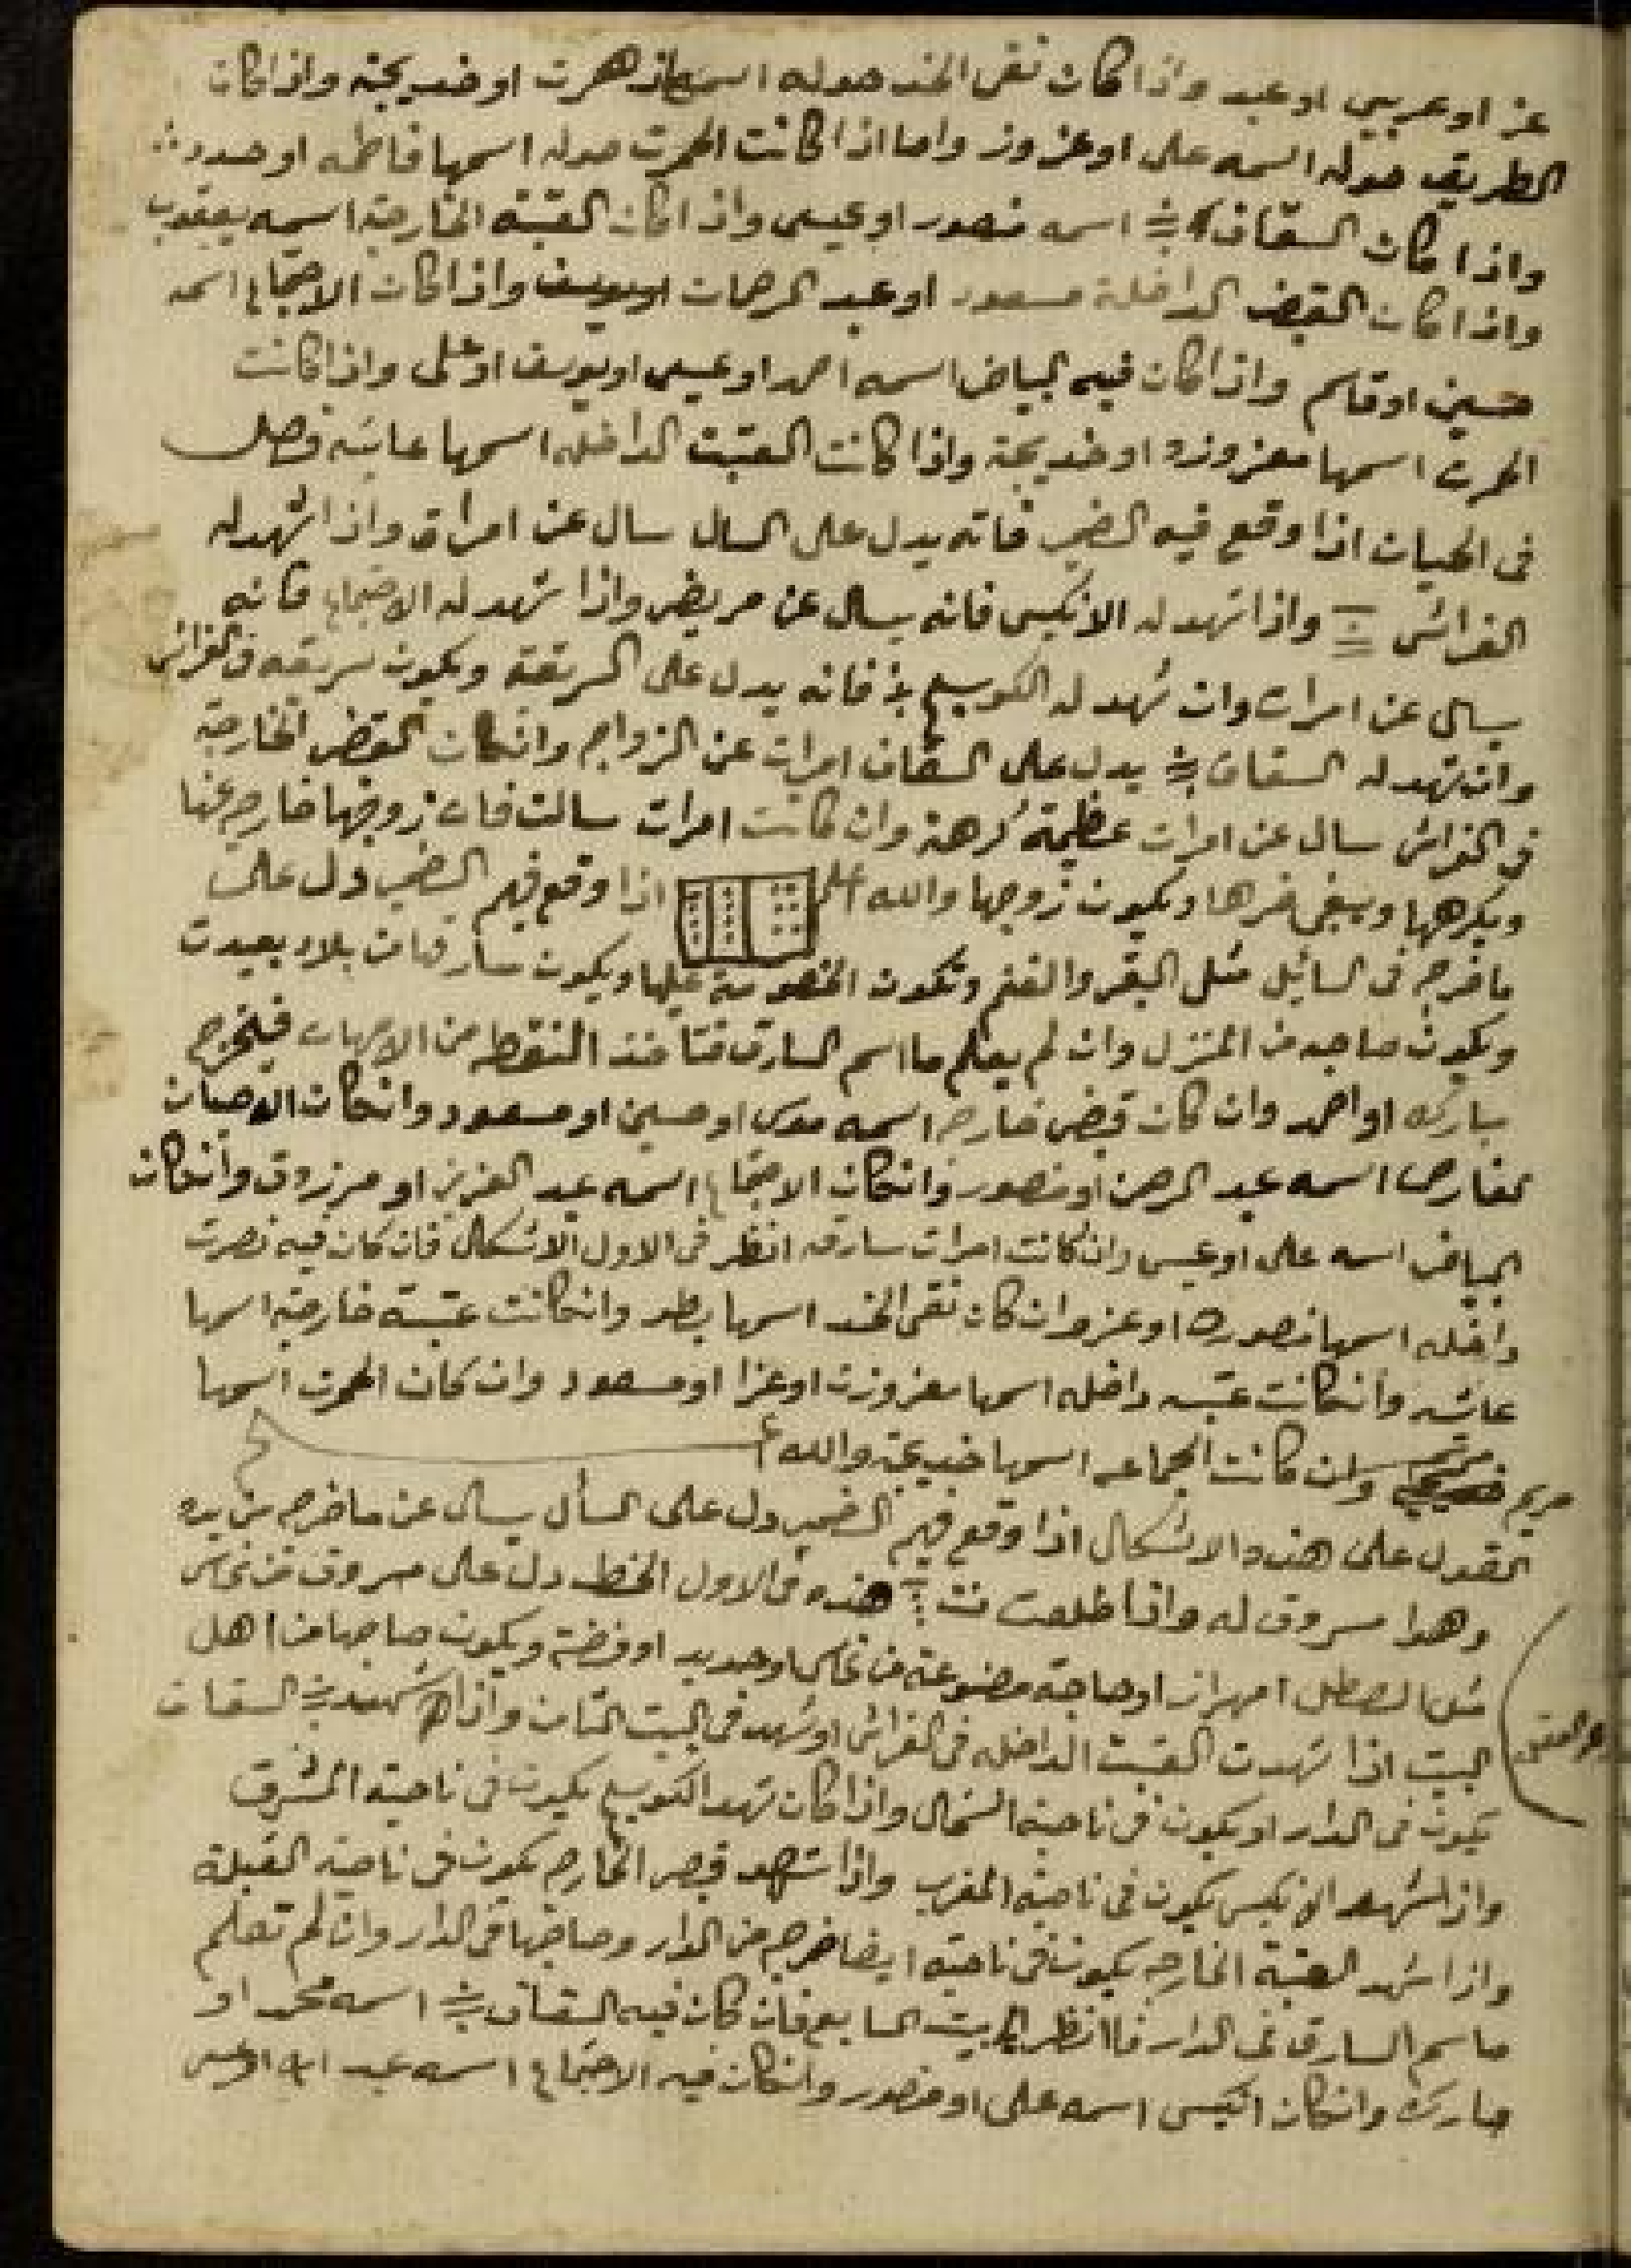 عز او عربي او عبد واذا كان نقي الخد حوله اسمها زهرت او خديجة واذا كان
الطريق حوله اسمه على او عزوز واما اذا كانت الحمرت حوله اسمها فاطمه او
واذا كان السقاف اسمه منصور او عيسى واذا كان العتبة الخارجة اسمه يعقوب
واذا كان القبض الداخلة مسعود او عبد الرحمان واذا كان الاجتماع اسمه
حسين او قاسم واذا كان فيه البياض اسمه احمد او عيسى او يوسف او على واذا كانت
الحمرت اسمها معزوزه او خديجة واذا كانت العتبت الداخله اسمها عايشه فصل
في الحيان اذا وقع فيه الضمير فانه يدل على السال سال عن امراة واذا شهد له
الفراش واذا شهد له الانكيس فانه يسال عن مريض واذا شهد له الاجتماع فانه
يسال عن امرات وان شهد له الكوسج فانه يدل على السرقة ويكون سرقه في الفراش
وان شهد له السقاف يدل على السقاف امرات عن الزواج وانكان القبض الخارجة
في الفراش سال عن امرات عظيمة كرهة وان كانت امرات سالت فان زوجها خارج عنها
ويكرهها ويبغى غرها ويكون زوجها والله اعلم اذا وقع فيهم الضمير دل على
ما خرج في السائل مثل البقر والغنم وتكون الخصومة عليها ويكون سارقها من بلاد بعيدت
ويكون صاحبه من المنزل وان لم يعلم ما اسم السارق فتاخذ النقطه من الامهات فيخرج
مبارك او احمد وان كان قبض خارج اسمه موسى او حسين او مسعود وانكان الاحيان
الخارج اسمه عبد الرحمن او منصور وانكان الاجتماع اسمه عبد العزيز او مرزوق وانكان
البياض اسمه على او عيسى وان كانت امرات سارقه انظر في الاول الاشكال فان كان فيه نصرت
داخله اسمها منصوره او عز وان كان نقي الخد اسمها وانكانت عتبة خارجة اسمها
عائشه وانكانت عتبه داخله اسمها معزوزت او عزا او مسعود وان كان الحمرت اسمها
مريم وان كانت الجماعه اسمها خديجة والله اعلم
القول على هذه الاشكال اذا وقع فيهم الضمير دل على السأل يسال عن ما خرج من يده
وهوا مسروق له واذا طلعت هذه في الاول الخط دل على مسروق من نحاس
مثل او حاجة مصنوعة من نحاس او حديد او فضة ويكون صاحبها من اهل
البيت اذا شهدت العتبت الداخله في الفراش او شهد في البيت الثامن واذا شهد السقاف
يكون في الدار او يكون في ناحية الشمال واذا كان شهد الكوسج يكون في ناحية المشرق
واذا شهد الانكيس يكون في ناحية المغرب واذا شهد قبض الخارج يكون في ناحية القبلة
واذا شهد العتبة الخارجه يكون في ناحيته ايضا خرج من الدار وصاحبها في الدار وان لم تعلم
ما سم السارق في الدار فاانظر البيت السابع فان كان فيه السقاف اسمه محمد او
مبارك وانكان انكيس اسمه على او منصور وانكان فيه الاجتماع اسمه عبد الله او عيسى